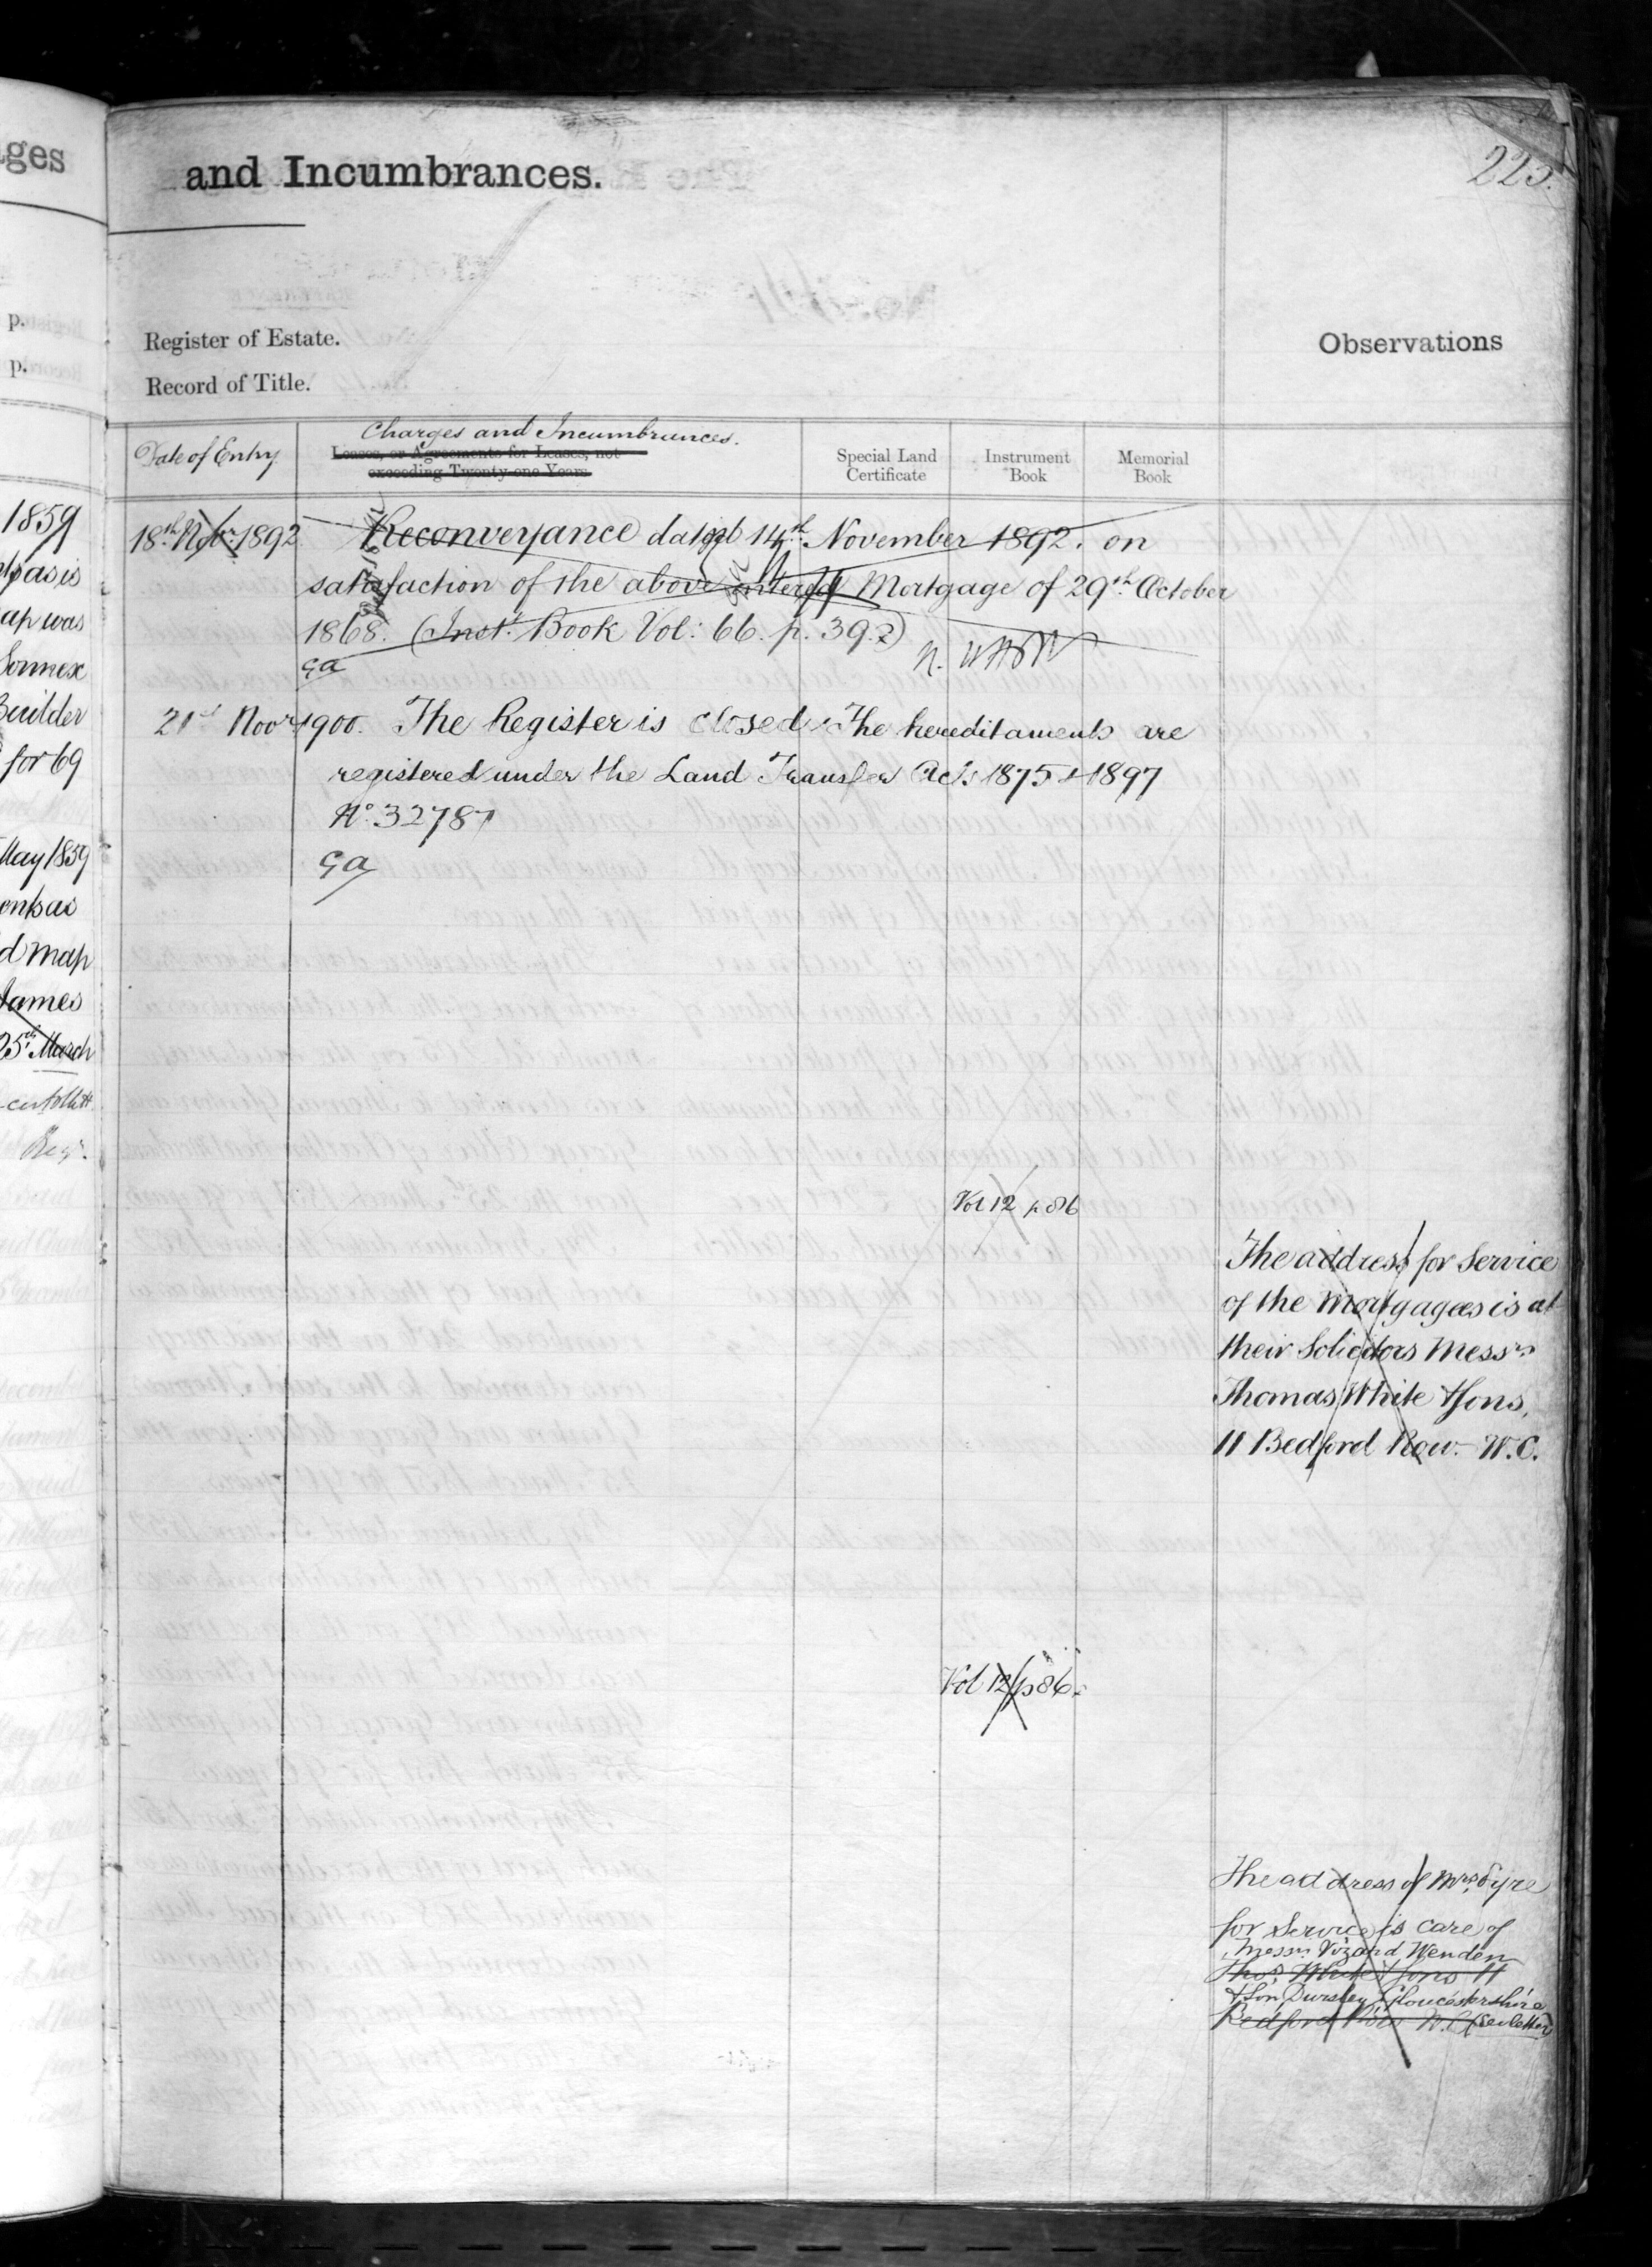 ges
and Incumbrances.
223.
p.
Register of Estate.
Observations
p.
Record of Title.
Date of Entry
Charges and Incumbrances.
Leases, or Agreements for Leases, not
exceeding Twenty-one Years
Special Land
Certificate
Instrument
Book
Memorial
Book
1859
as is
ap was
Sonnex
Builder
for 69
May 1859
ents as
d map
James
25th March
Regr.
18th Novr 1892
Reconveyance dated 14th November 1892. on
satisfaction of the above entered Mortgage of 29th October
1868. (Inst. Book Vol: 66. p. 392)
ga
21st Novr 1900. The Register is closed. The hereditaments are
registered under the Land Transfer Acts 1875 & 1897
No. 32787
ga
Vol 12 p 86
The address for Service
of the Mortgagees is at
their Solicitors Messrs
Thomas White & Sons,
11 Bedford Row. W.C.
Vol 12 p 86.
The address of Mrs Eyre
for Service is care of
Messrs Vizard Wenden
Thos White & Sons 11
& Son Dursley Gloucestershire
Bedford Row W.C. (see letter)